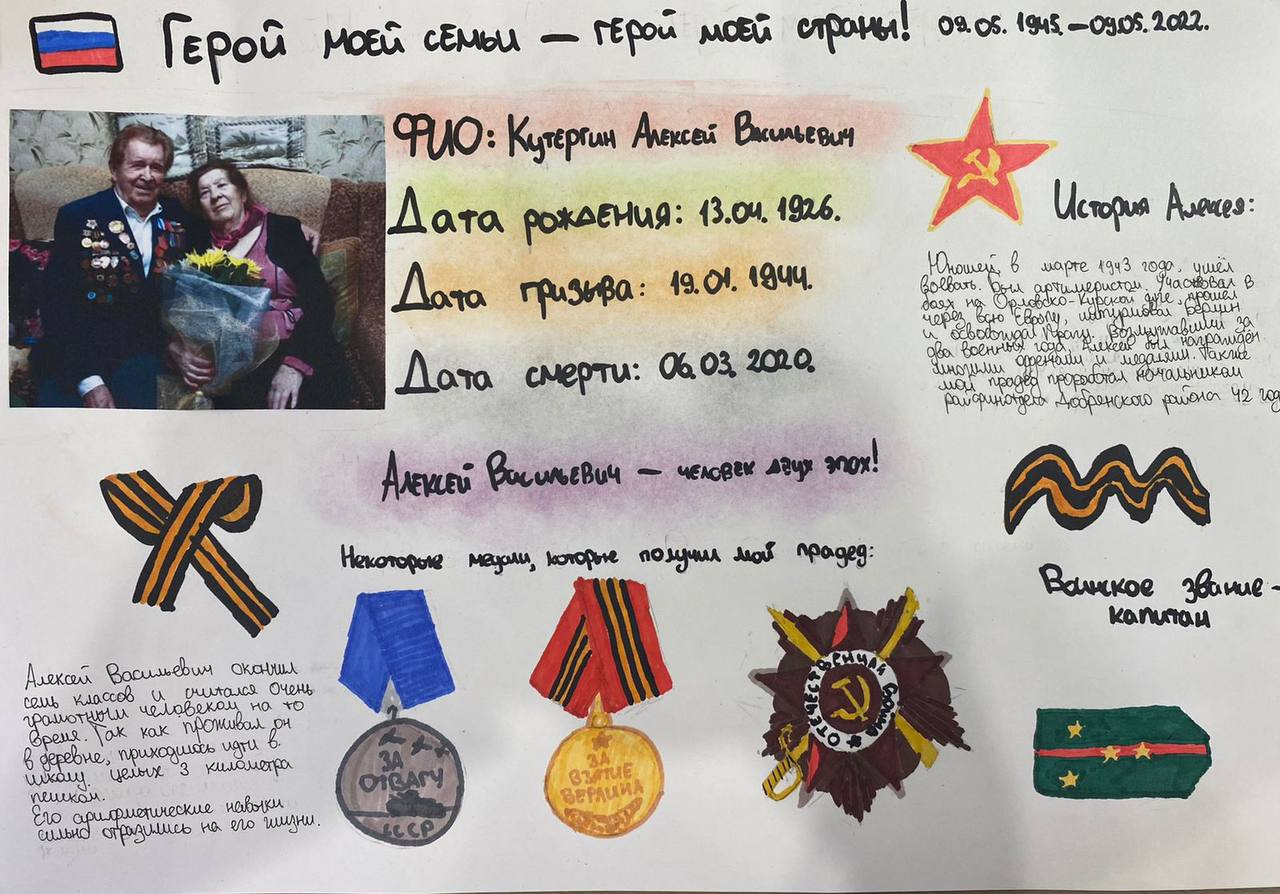 Герой моей семьи — герой моей страны! 09.05.1945 — 09.05.2022.
ФИО: Кутергин Алексей Васильевич
Дата рождения: 13.04.1926.
Дата призыва: 19.01.1944.
Дата смерти: 06.03.2020.
История Алексея:
Юношей, в марте 1943 года, ушёл
воевать. Был артиллеристом. Участвовал в
боях на Орловско-Курской дуге, прошёл
через всю Европу, штурмовал Берлин
и освобождал Прагу. Возмужавший за
два военных года, Алексей был награждён
многими орденами и медалями. Также
мой прадед проработал начальником
райфинотдела Добрянского района 42 год
Алексей Васильевич — человек двух эпох!
Некоторые медали, которые получил мой прадед:
Воинское звание -
капитан
Алексей Васильевич окончил
семь классов и считался очень
грамотным человеком на то
время. Так как проживал он
в деревне, приходилось идти в
школу целых 3 километра
пешком.
Его арифметические навыки
сильно отразились на его жизни.
ЗА
ОТВАГУ
СССР
ЗА
ВЗЯТИЕ
БЕРЛИНА
ОТЕЧЕСТВЕННАЯ